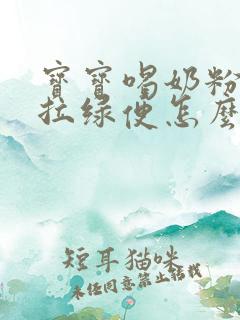 寳寳喝奶粉
拉绿便怎麽
短耳猫咪
未经同意禁止转载